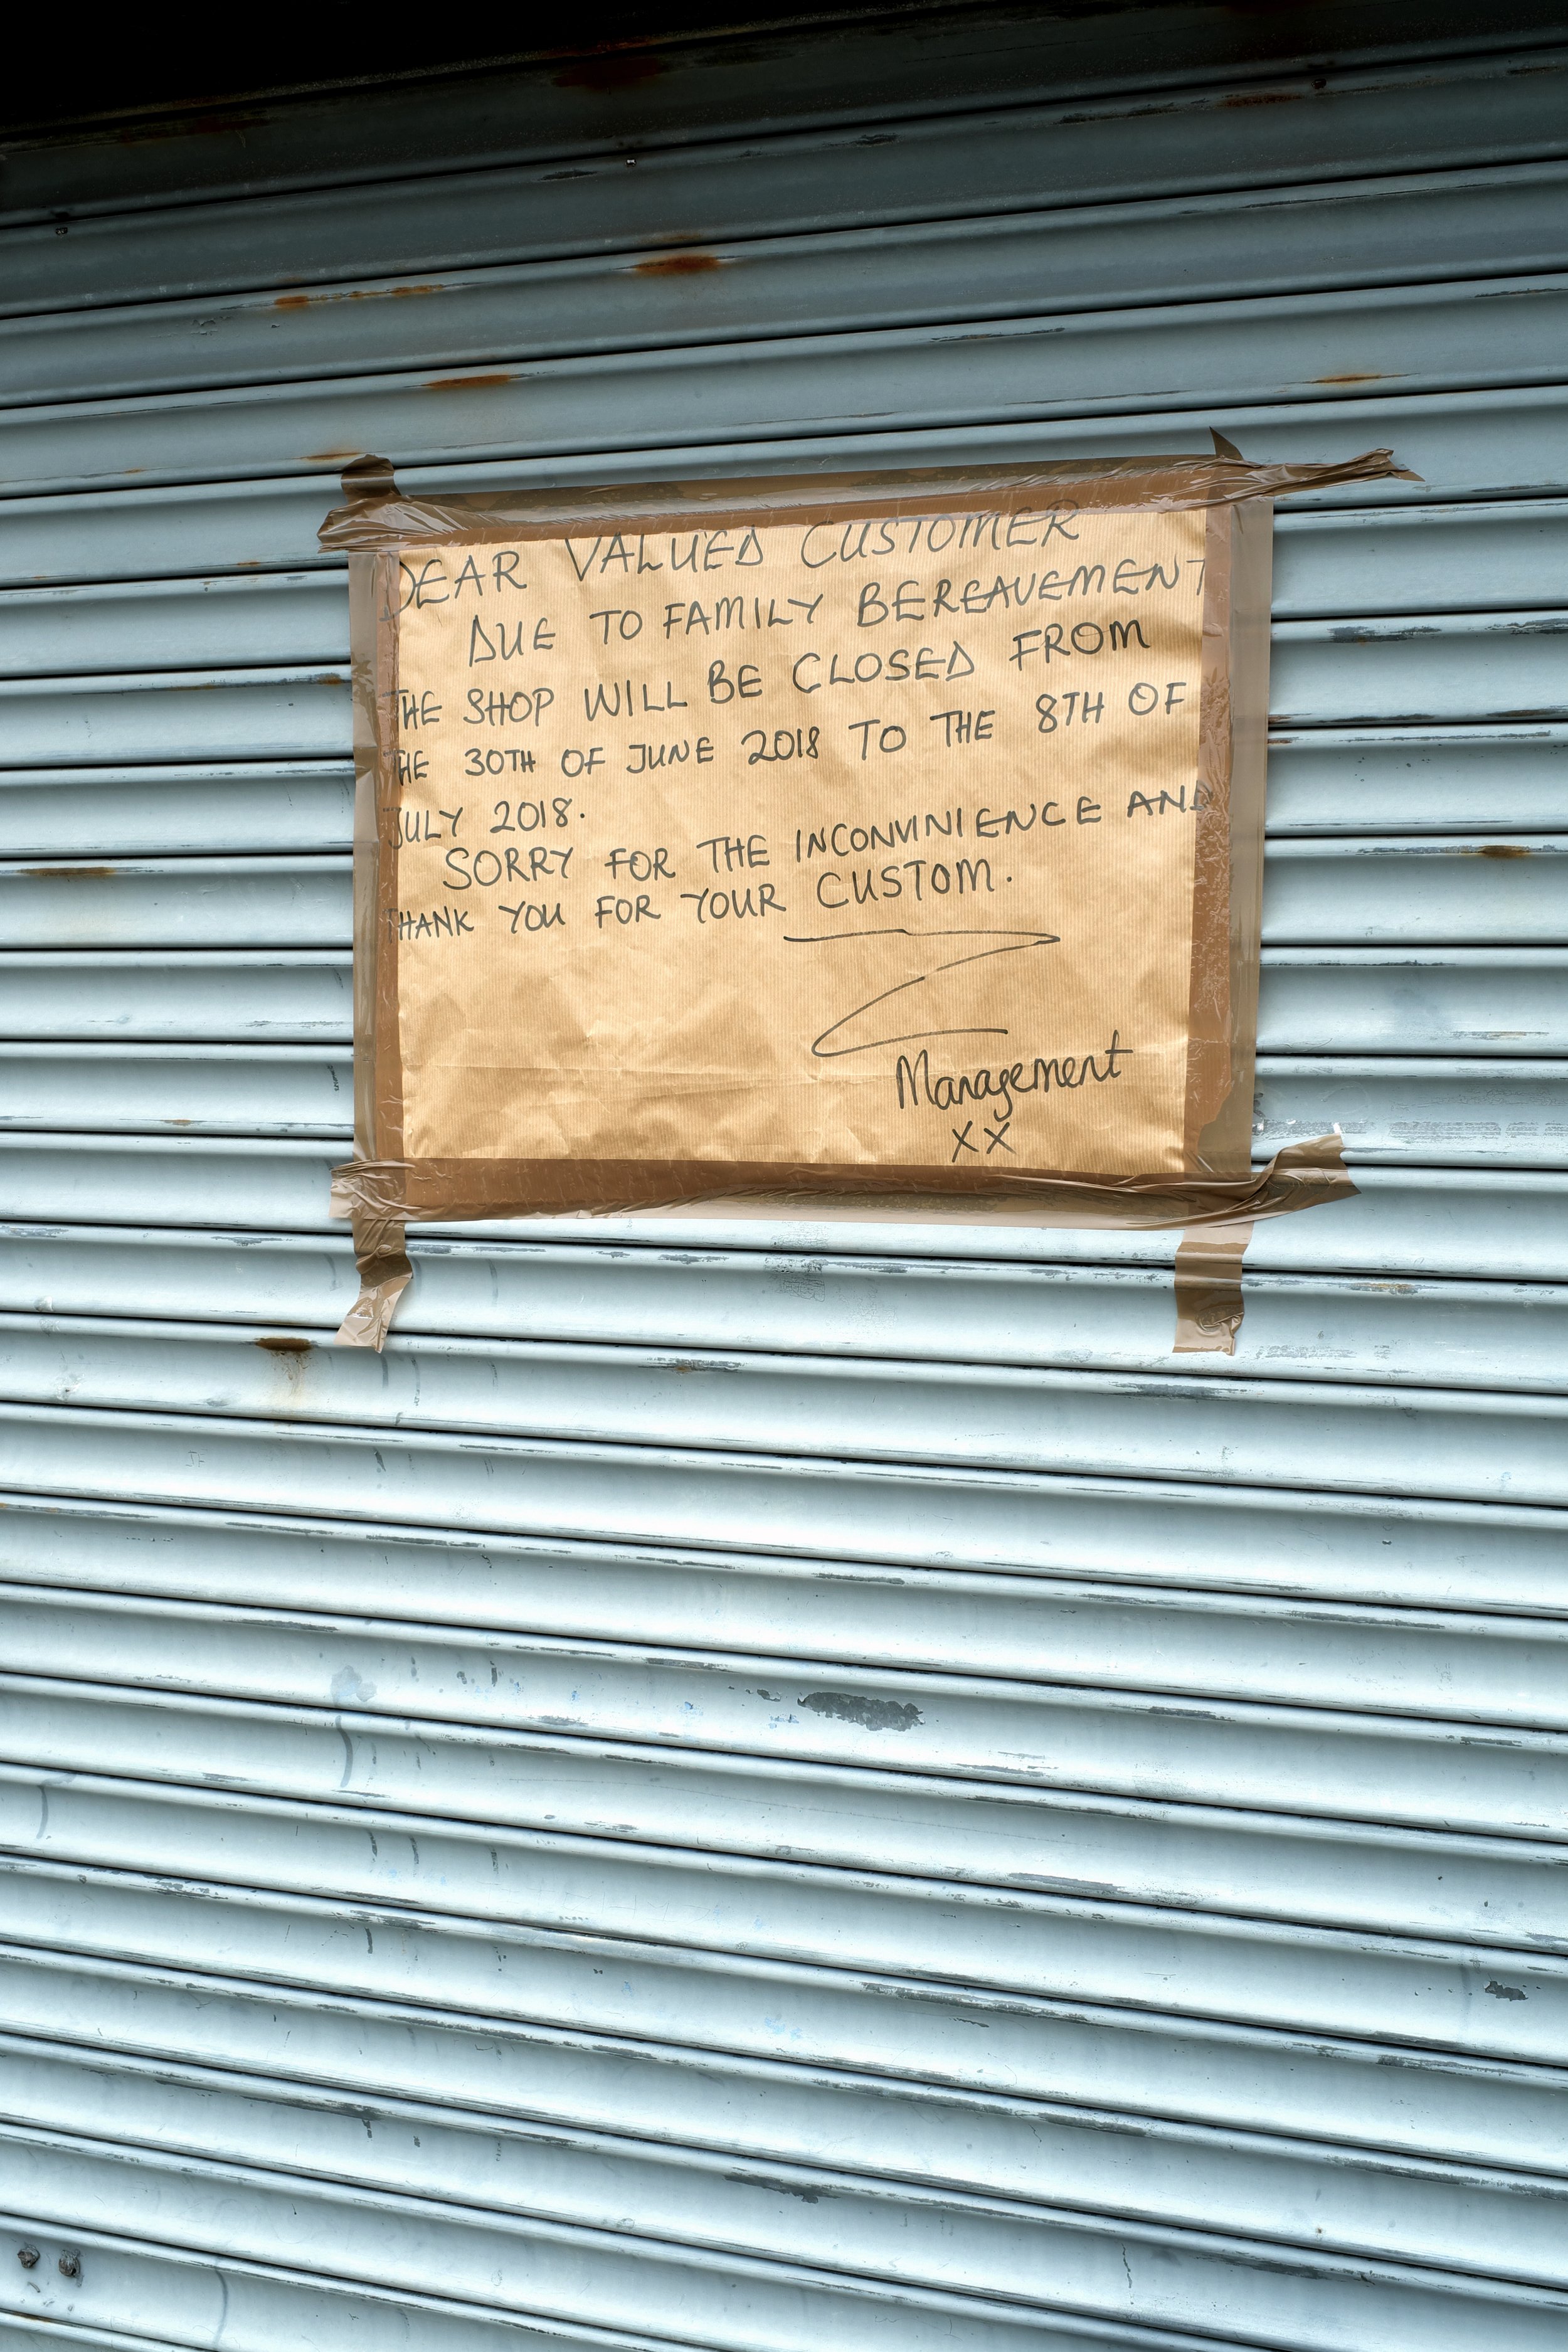 DEAR VALUED CUSTOMER
DUE TO FAMILY BEREAVEMENT
THE SHOP WILL BE CLOSED FROM
THE 30TH OF JUNE 2018 TO THE 8TH OF
JULY 2018.
SORRY FOR THE INCONVINIENCE AND
THANK YOU FOR YOUR CUSTOM.
Management
XX